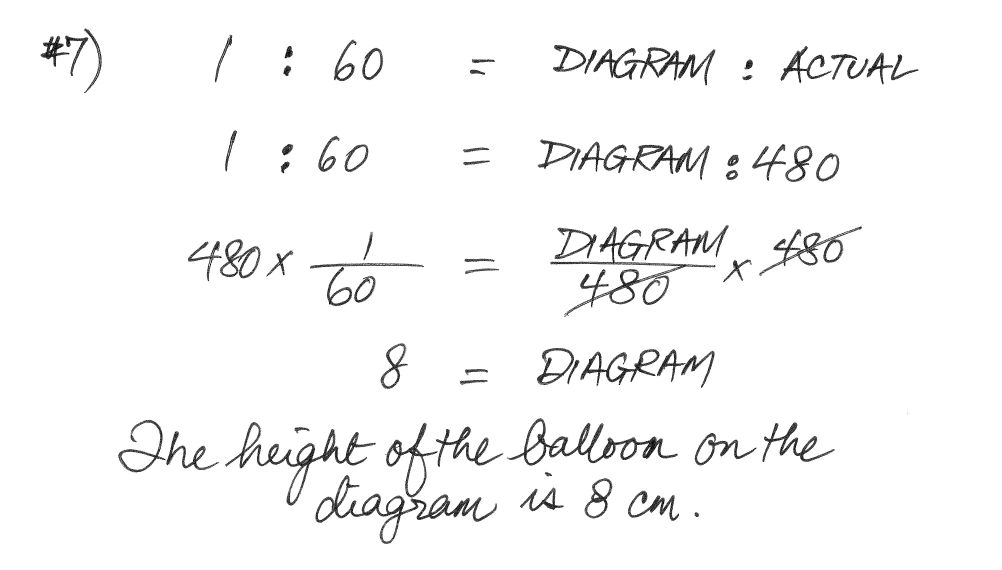 #7) 1 : 60 = DIAGRAM : ACTUAL
1 : 60 = DIAGRAM : 480
480 x 1/60 = DIAGRAM/480 x 480
8 = DIAGRAM
The height of the balloon on the
diagram is 8 cm.